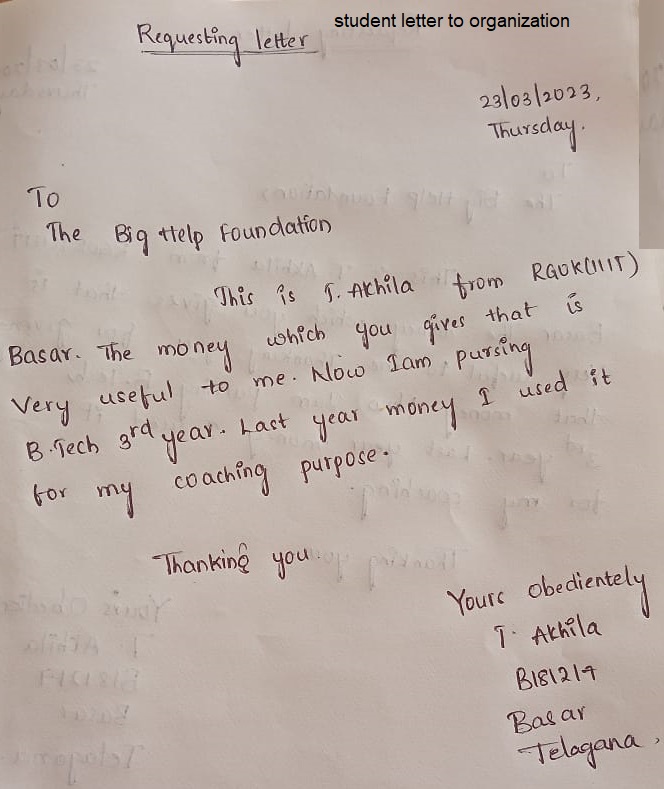 student letter to organization
Requesting letter
23/03/2023,
Thursday.
To
The Big Help Foundation
This is T. Akhila from RGUK(IIIT)
Basar. The money which you gives that is
Very useful to me. Now Iam pursing
B.Tech 3rd year. Last year money I used it
for my coaching purpose.
Thanking you.
Yours Obedientely
T. Akhila
B181217
Basar
Telagana,